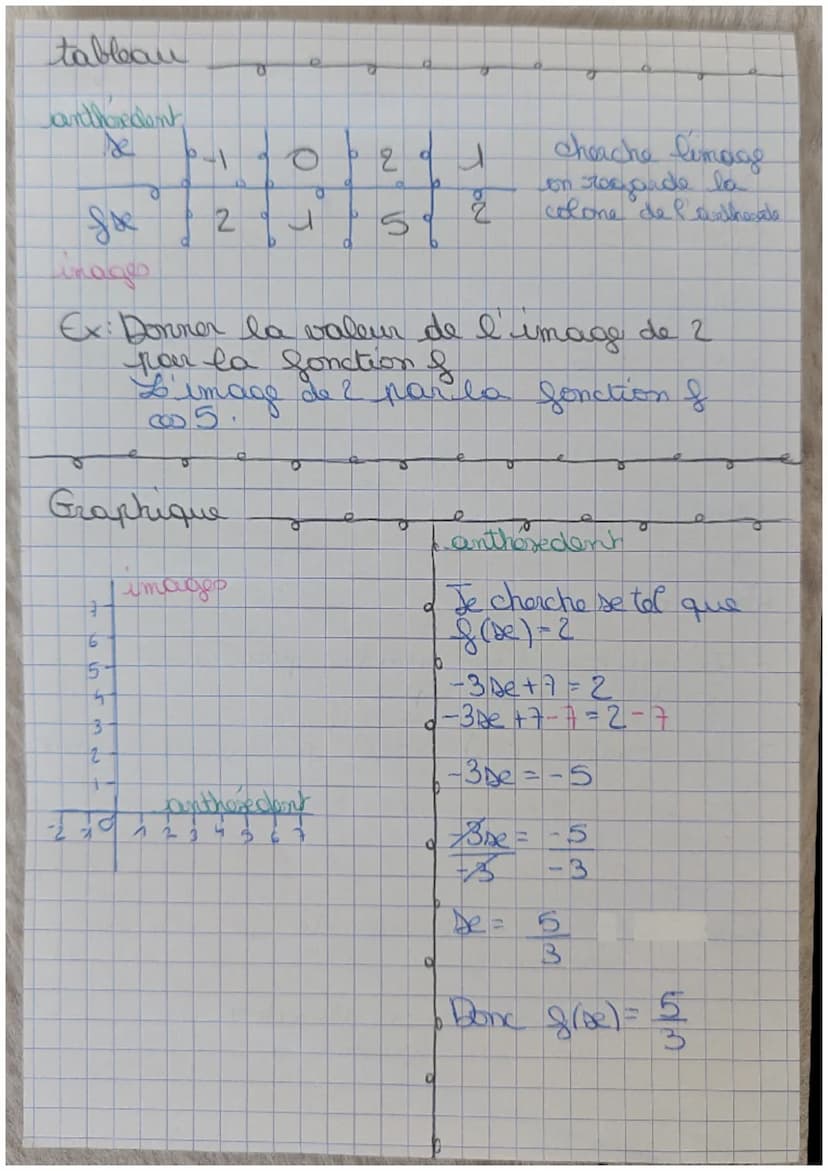 tableau
anthésedant
x -1 0 2 1
fx 2 1 5 2
cherche l'image
en regarde la
colone de l'anthesede
images
Ex: Donner la valeur de l'image de 2
par la fonction f
L'image de 2 par la fonction f
es 5.
Graphique
images
7
6
5
4
3
2
1
anthésedent
-2 -1 0 1 2 3 4 5 6 7
anthésedent
Je cherche x tel que
f(x)=2
-3x+7=2
-3x+7-7=2-7
-3x=-5
-3x/-3 = -5/-3
x = 5/3
Donc f(x) = 5/3